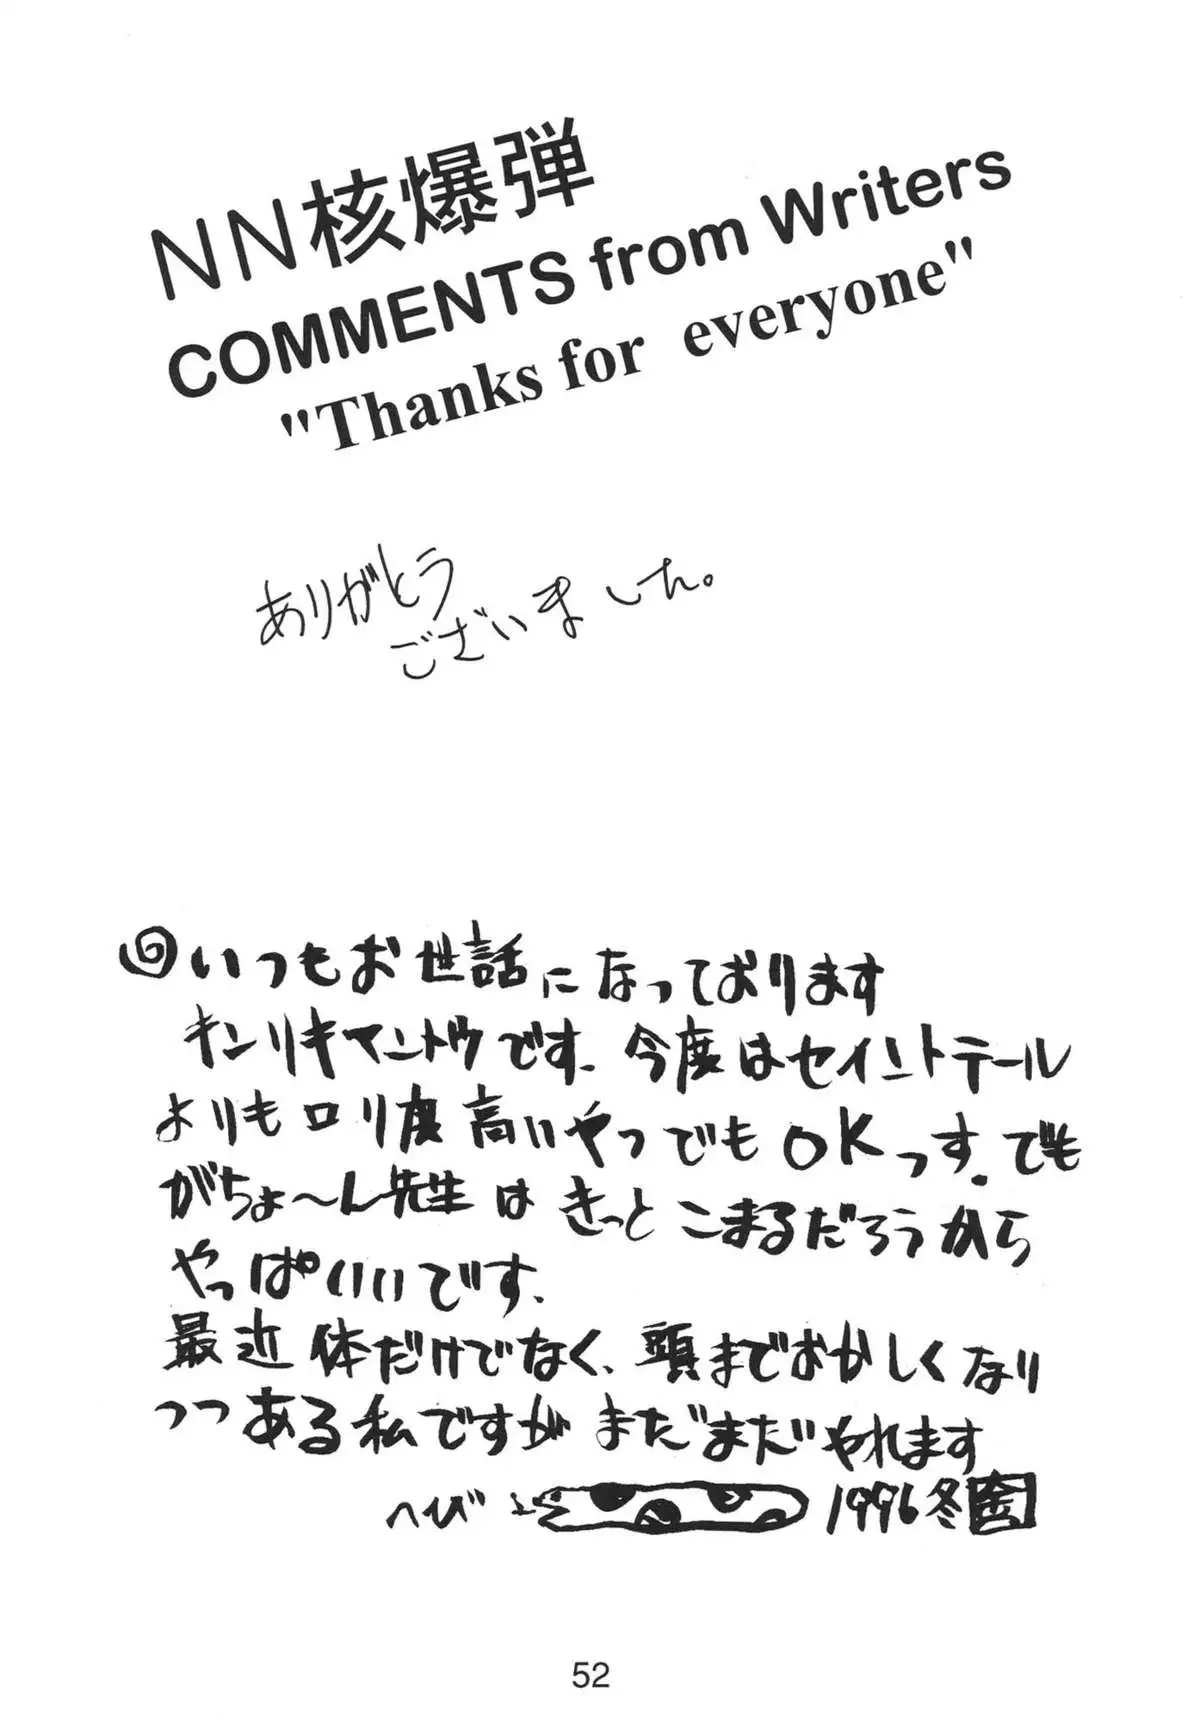 NN核爆弾
COMMENTS from Writers
"Thanks for everyone"
ありがとう
ございました。
いつもお世話になっております
キンリキマントウです.今度はセイントテール
よりもロリ度高いやつでもOKっす.でも
がちょ〜ん先生はきっとこまるだろうから
やっぱいいです.
最近体だけでなく、頭までおかしくなり
つつある私ですがまだまだやれます
へび 1996冬 金
52